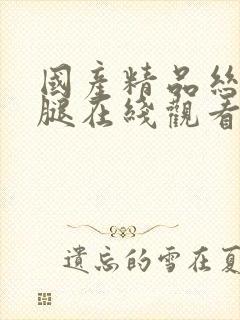 國產精品絲
腿在綫觀看
遺忘的雪在夏